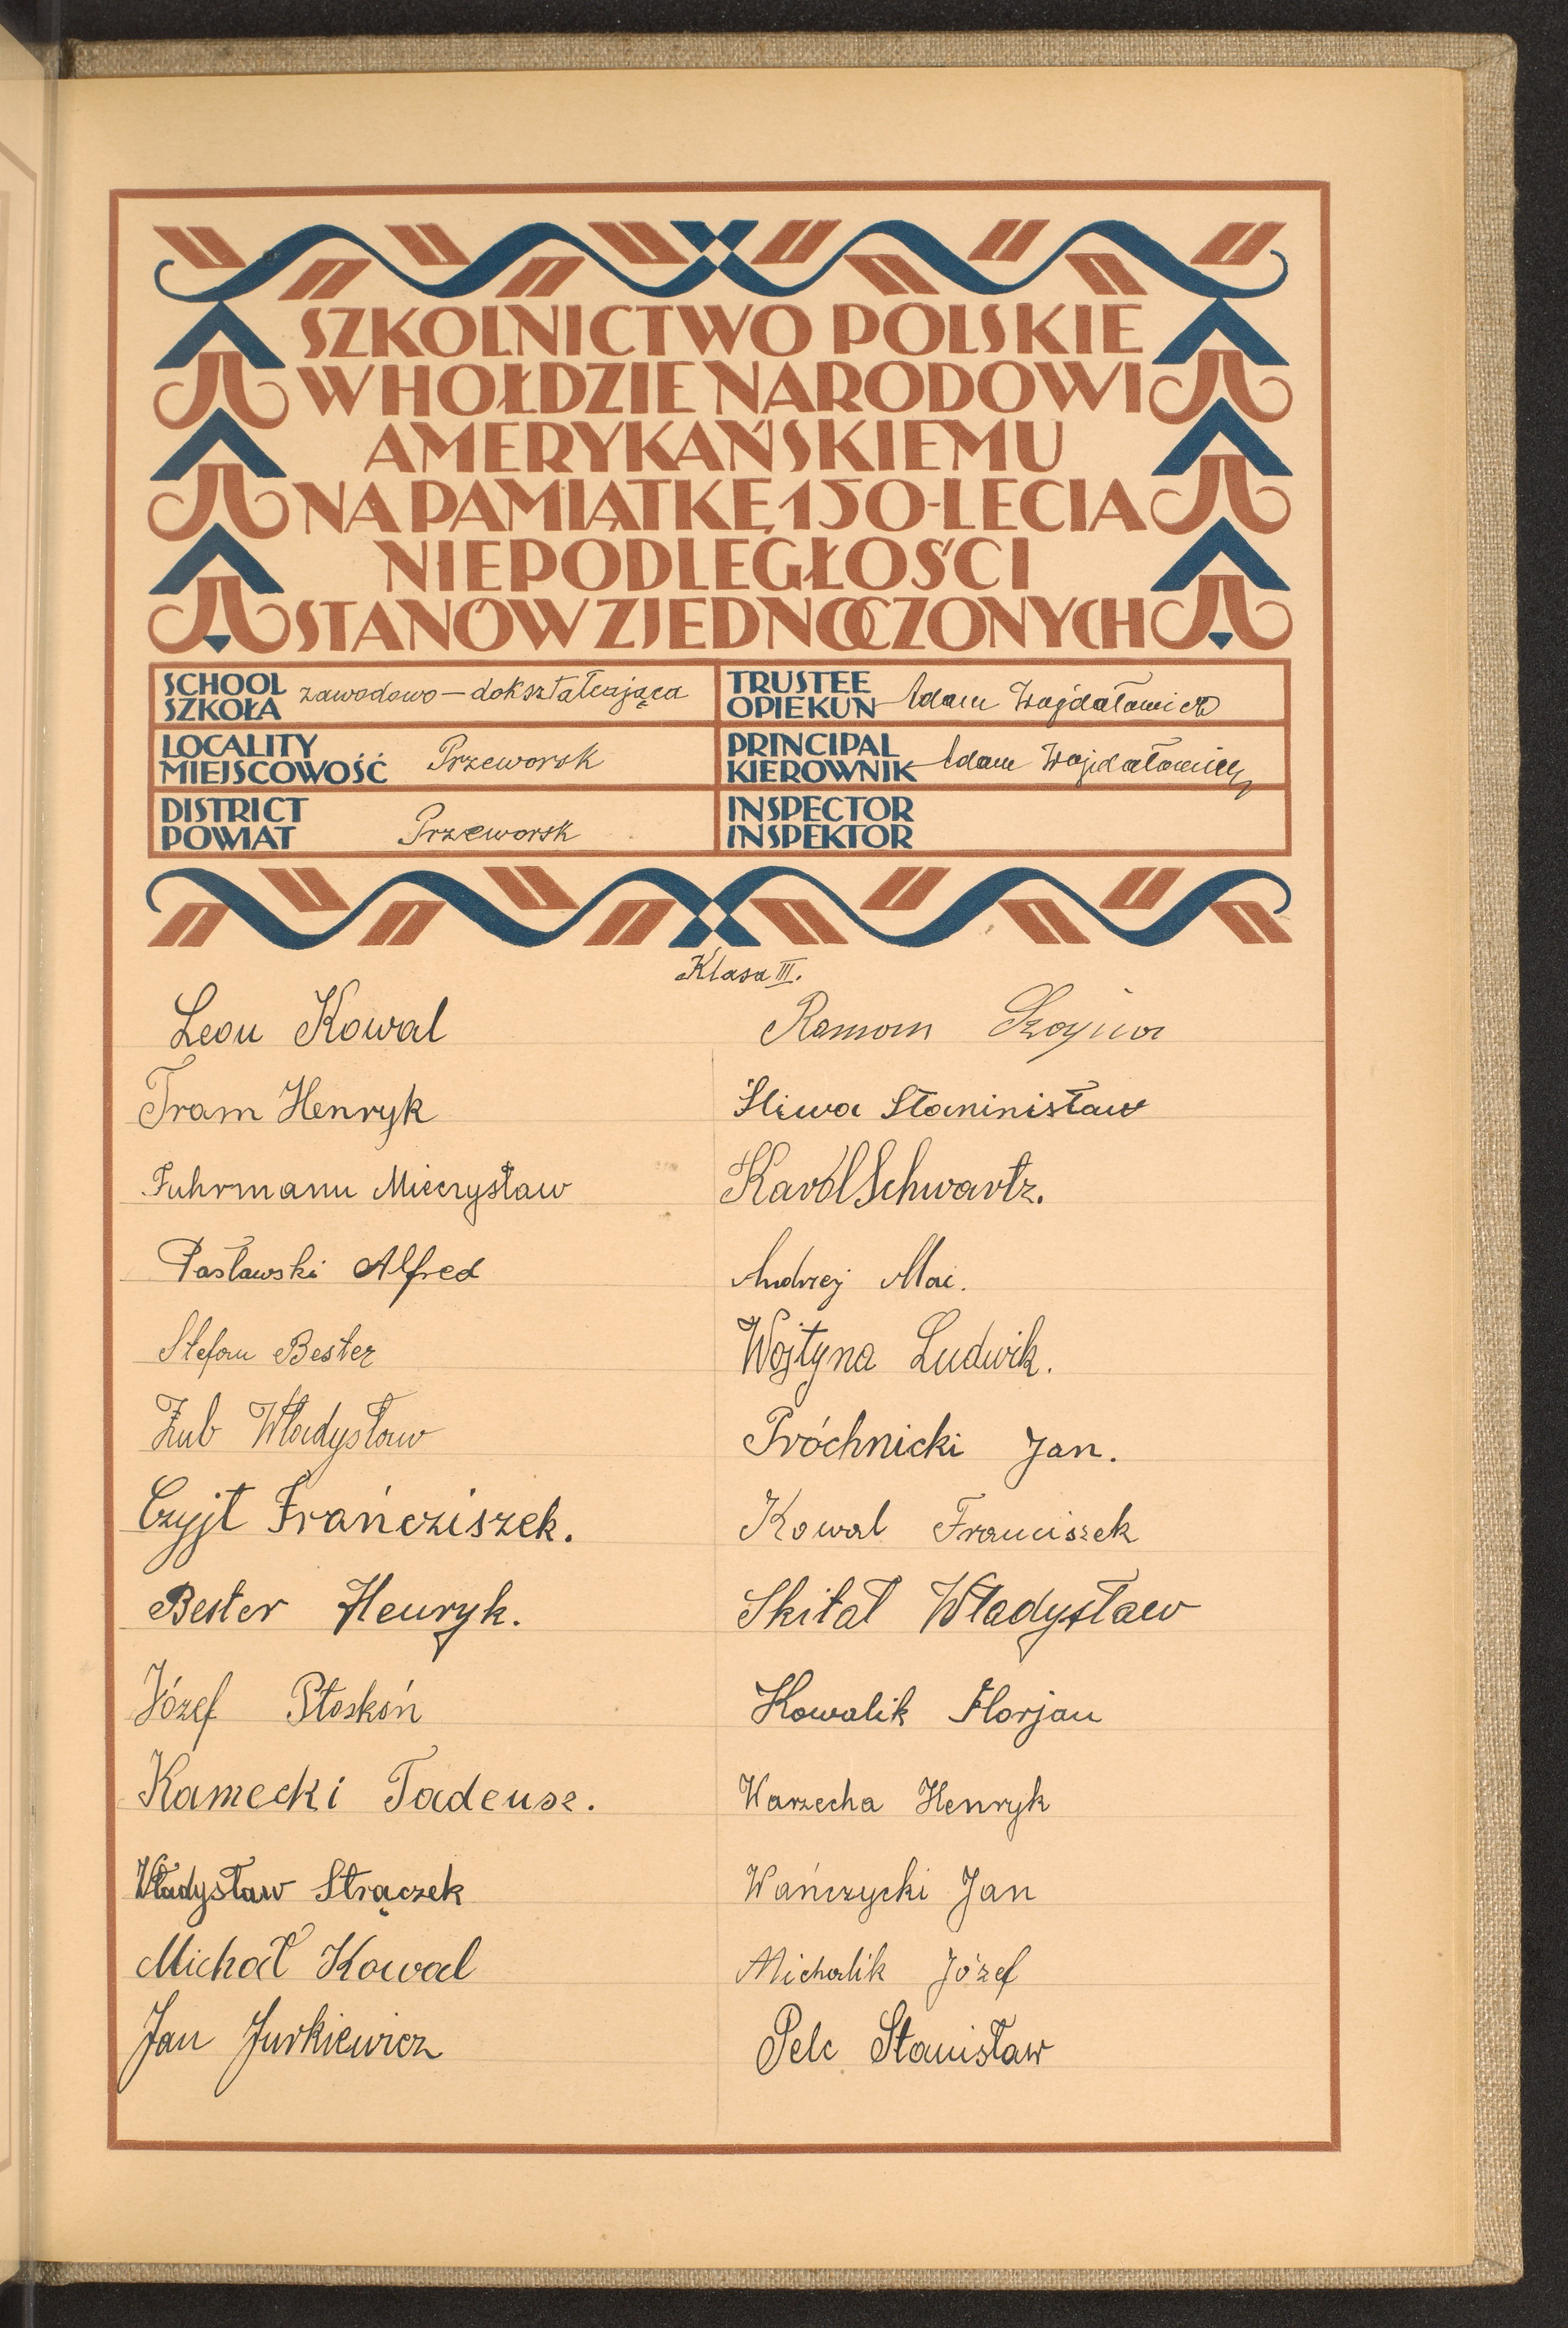 SZKOLNICTWO POLSKIE
W HOŁDZIE NARODOWI
AMERYKAŃSKIEMU
NA PAMIĄTKĘ 150-LECIA
NIEPODLEGŁOŚCI
STANÓW ZJEDNOCZONYCH
SCHOOL
SZKOŁA
zawodowo-dokształcająca
TRUSTEE
OPIEKUN
Adam Wojdałowicz
LOCALITY
MIEJSCOWOŚĆ
Przeworsk
PRINCIPAL
KIEROWNIK
Adam Wojdałowicz
DISTRICT
POWIAT
Przeworsk
INSPECTOR
INSPEKTOR
Klasa III.
Leon Kowal
Tram Henryk
Fuhrmann Mieczysław
Pasławski Alfred
Stefan Bester
Żub Władysław
Czyjt Frańcziszek.
Bester Henryk.
Józef Płoskoń
Kamecki Tadeusz.
Władysław Strączek
Michał Kowal
Jan Jurkiewicz
Roman
Śliwa Staninisław
Karol Schwartz.
Andrzej Mac.
Wojtyna Ludwik.
Próchnicki Jan.
Kowal Franciszek
Skitał Władysław
Kowalik Florjan
Warzecha Henryk
Wańczycki Jan
Michalik Józef
Pelc Stanisław